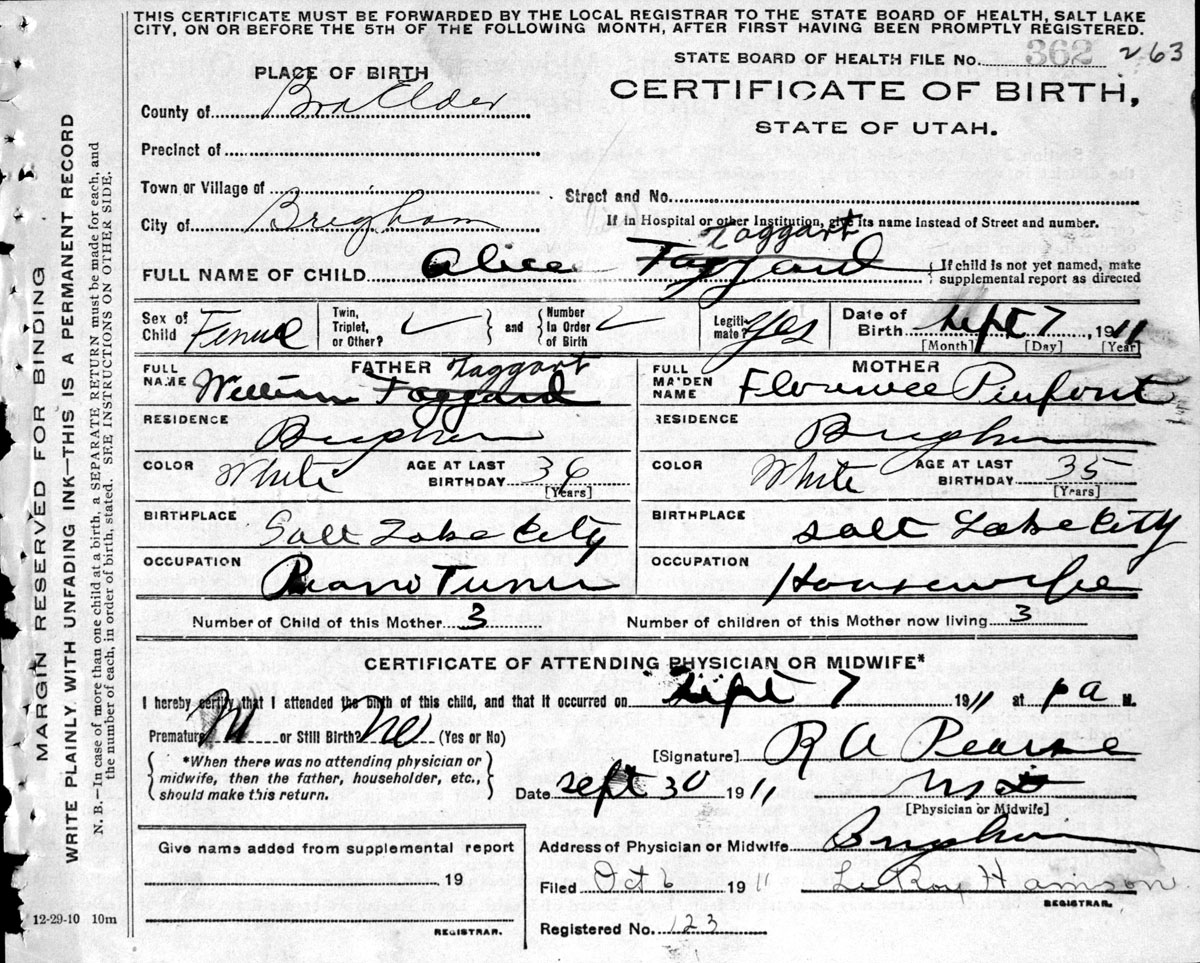 THIS CERTIFICATE MUST BE FORWARDED BY THE LOCAL REGISTRAR TO THE STATE BOARD OF HEALTH, SALT LAKE
CITY, ON OR BEFORE THE 5TH OF THE FOLLOWING MONTH, AFTER FIRST HAVING BEEN PROMPTLY REGISTERED.
STATE BOARD OF HEALTH FILE No. 362 263
PLACE OF BIRTH
CERTIFICATE OF BIRTH,
STATE OF UTAH.
County of Box Elder
Precinct of
Town or Village of
Street and No.
City of Brigham
If in Hospital or other Institution, give its name instead of Street and number.
Taggart
FULL NAME OF CHILD Alice Taggard
If child is not yet named, make
supplemental report as directed
Sex of Child Female
Twin, Triplet, or Other?
and
Number In Order of Birth
Legitimate? Yes
Date of Birth Sept 7, 1911
[Month] [Day] [Year]
FATHER Taggart
FULL NAME William Taggard
RESIDENCE Brigham
COLOR White AGE AT LAST BIRTHDAY 36
[Years]
BIRTHPLACE Salt Lake City
OCCUPATION Piano Tuner
Number of Child of this Mother 3
MOTHER
FULL MAIDEN NAME Florence
RESIDENCE Brigham
COLOR White AGE AT LAST BIRTHDAY 35
[Years]
BIRTHPLACE Salt Lake City
OCCUPATION Housewife
Number of children of this Mother now living 3
CERTIFICATE OF ATTENDING PHYSICIAN OR MIDWIFE*
I hereby certify that I attended the birth of this child, and that it occurred on Sept 7 1911 at M.
Premature or Still Birth? No (Yes or No)
*When there was no attending physician or
midwife, then the father, householder, etc.,
should make this return.
[Signature] R A Pearse
Date Sept 30 1911
[Physician or Midwife]
Address of Physician or Midwife Brigham
Give name added from supplemental report
19
REGISTRAR.
Filed Oct 6 1911
REGISTRAR.
Registered No. 123
MARGIN RESERVED FOR BINDING
WRITE PLAINLY WITH UNFADING INK—THIS IS A PERMANENT RECORD
N. B.—In case of more than one child at a birth, a SEPARATE RETURN must be made for each, and
the number of each, in order of birth, stated. SEE INSTRUCTIONS ON OTHER SIDE.
12-29-10 10m